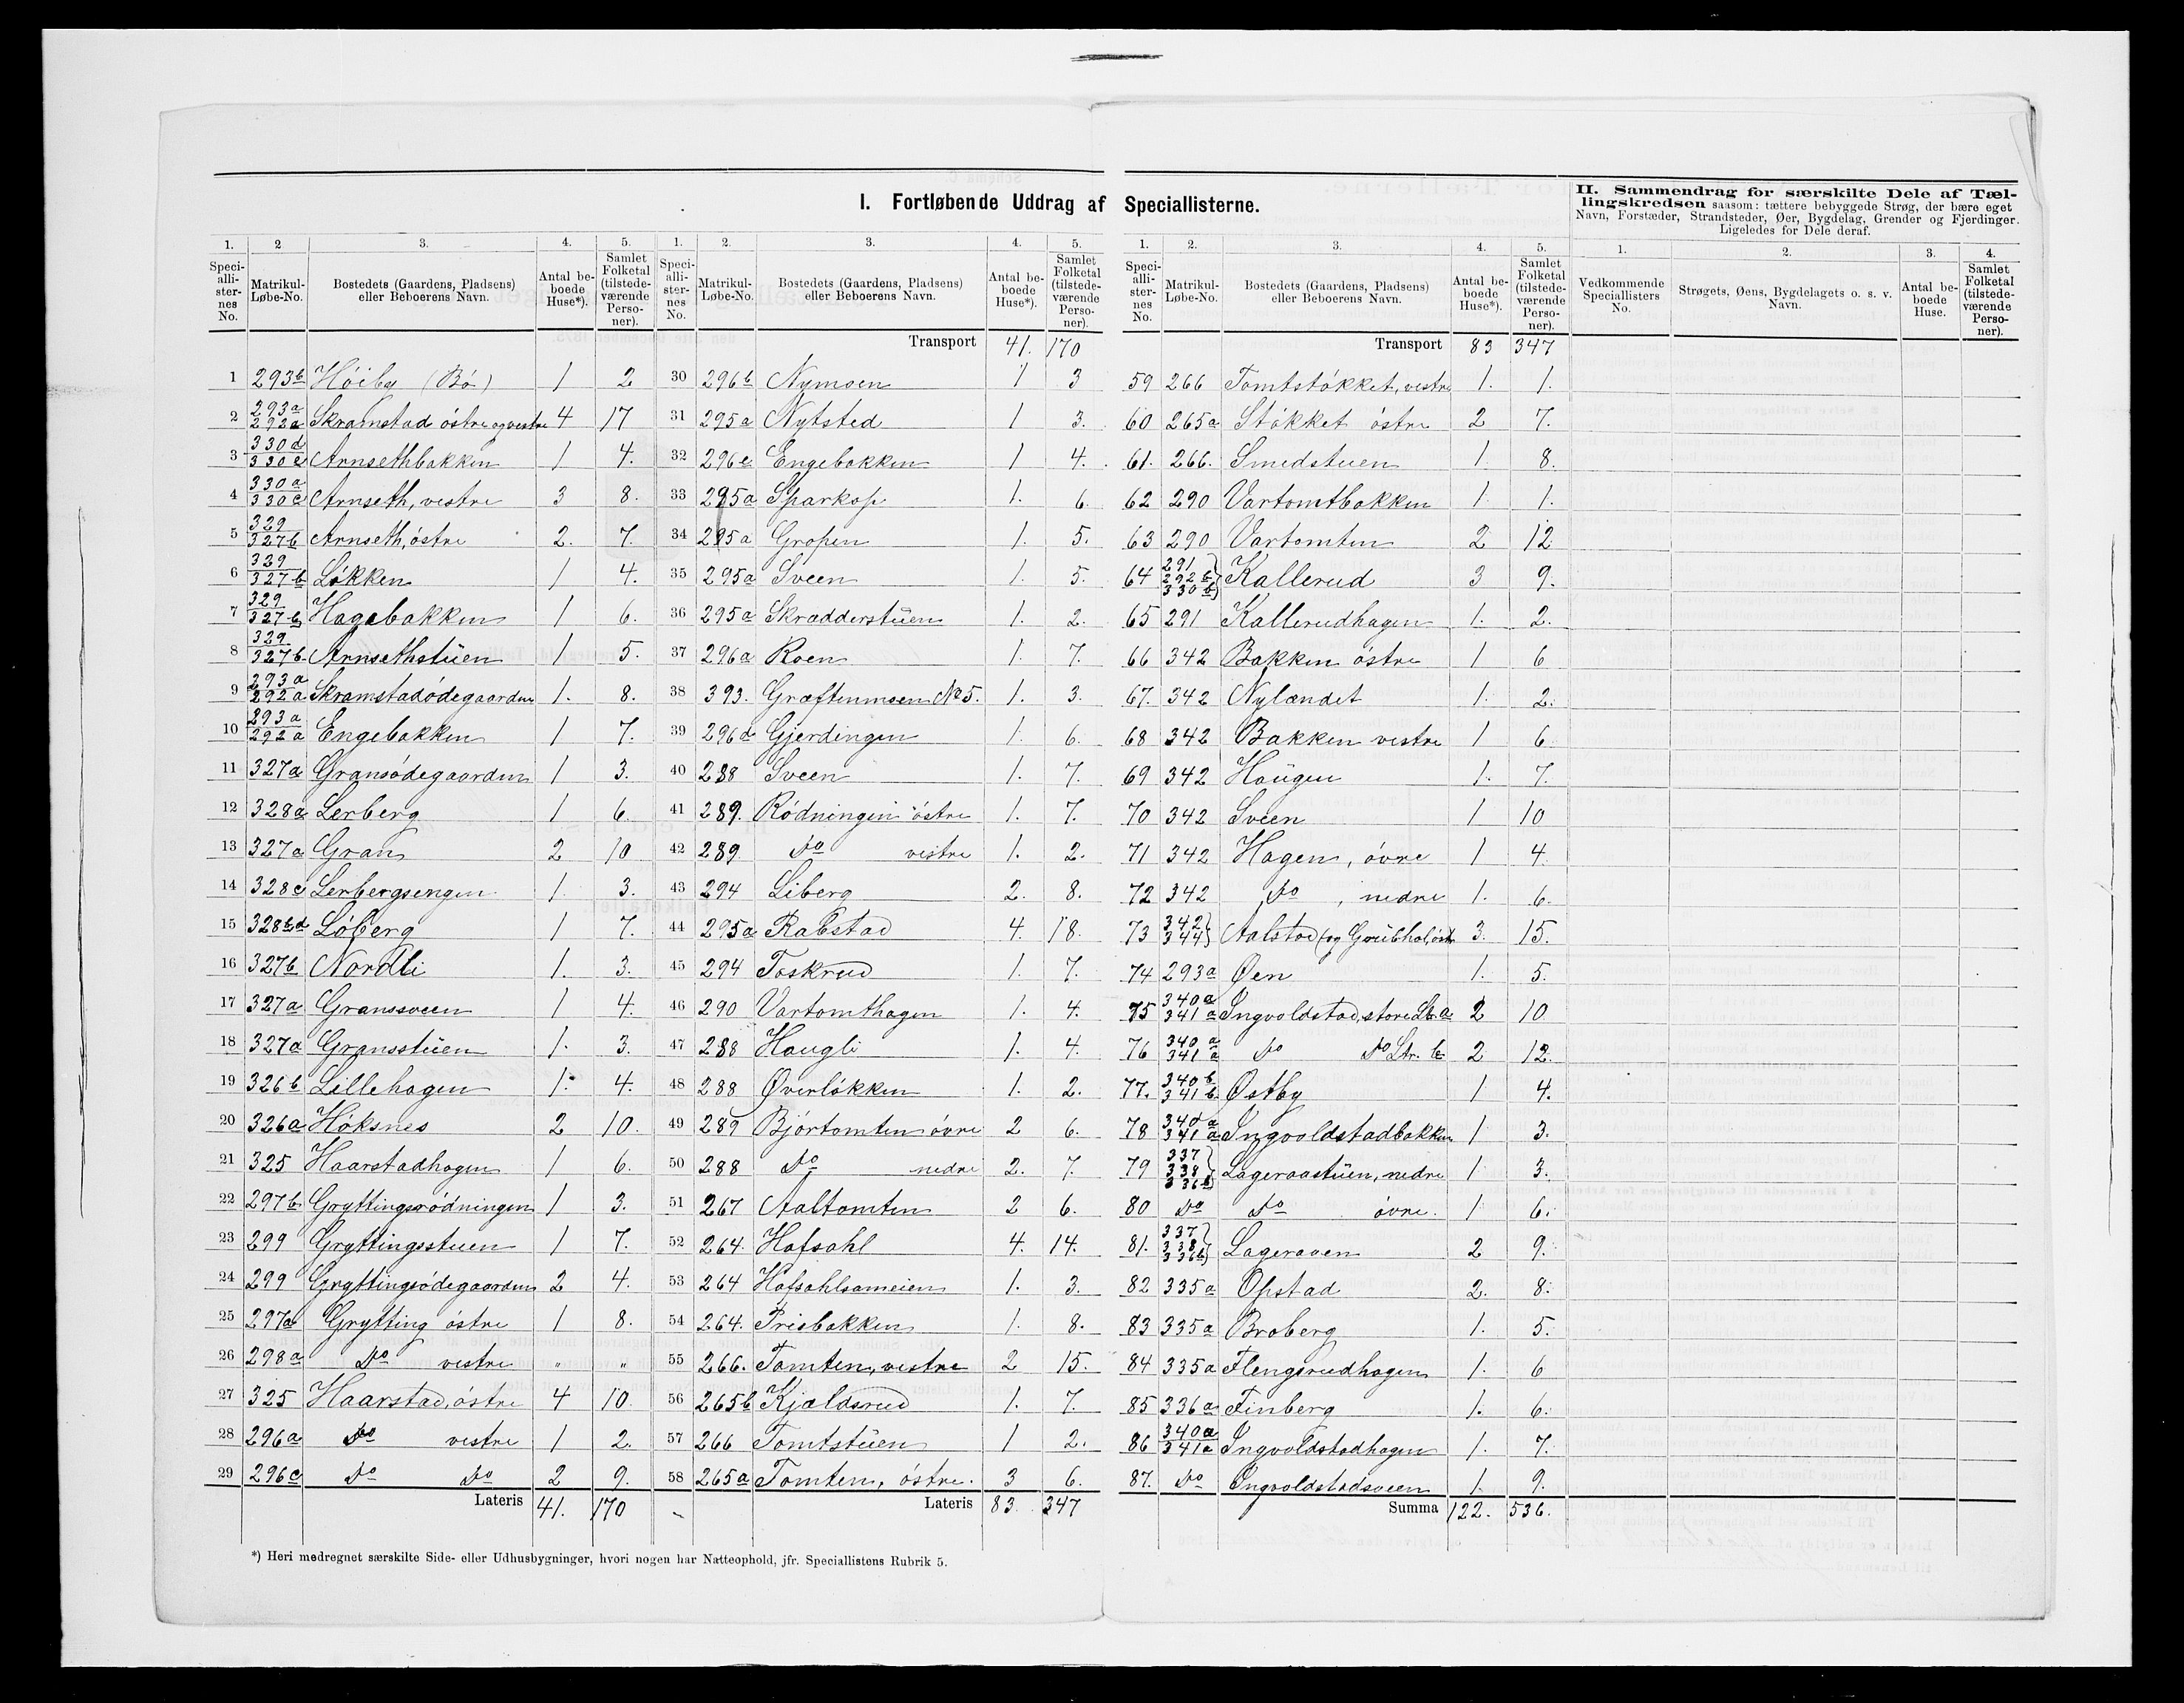 I. Fortløbende Uddrag af Speciallisterne.
II. Sammendrag for særskilte Dele af Tæl-
lingskredsen saasom: tættere bebyggede Strøg, der bære eget
Navn, Forstæder, Strandsteder, Øer, Bygdelag, Grender og Fjerdinger.
Ligeledes for Dele deraf.
1. 2 3. 4. 5. 1. 2. 3. 4. 5. 1. 2. 3. 4. 5. 1. 2. 3. 4.
Speci-alli-ster-nes No. Matrikul-Løbe-No. Bostedets (Gaardens, Pladsens) eller Beboerens Navn. Antal be-boede Huse*). Samlet Folketal (tilstede-værende Perso-ner).
Speci-alli-ster-nes No. Matrikul-Løbe-No. Bostedets (Gaardens, Pladsens) eller Beboerens Navn. Antal be-boede Huse*). Samlet Folketal (tilstede-værende Perso-ner).
Speci-alli-ster-nes No. Matrikul-Løbe-No. Bostedets (Gaardens, Pladsens) eller Beboerens Navn. Antal be-boede Huse*). Samlet Folketal (tilstede-værende Perso-ner).
Vedkommende Speciallisters No. Strøgets, Øens, Bygdelagets o. s. v. Navn. Antal be-boede Huse. Samlet Folketal (tilstede-værende Perso-ner).
1 293b Höiby (Bö) 1 2
2 293a 292a Skramstad östre og vestre 4 17
3 330d 330e Arnsethbakken 1 4.
4 330a 330c Arnseth, vestre 3 8.
5 329 327b Arnseth, östre 2. 7.
6 329 327b Lökken 1 4.
7 329 327b Hagebakken 1 6.
8 329 327b. Arnsethstüen 1 5.
9 293a 292a Skramstadödegaarden 1. 8.
10 293a 292a Engebakken 1 7.
11 327a Gransödegaarden 1 3.
12 328a Lerberg 1 6.
13 327a Gran 2 10
14 328c Lerbergsengen 1. 3.
15 328bd Löberg 1 7.
16 327b Nordli 1. 3.
17 327a Granssveen 1 4.
18 327a Gransstüen 1. 3.
19 326b Lillehagen 1. 4.
20 326a Höksnes 2 10.
21 325 Haarstadhagen 1 6.
22 297b Gryttingsrödningen 1 3.
23 299 Gryttingsstuen 1 7.
24 299 Gryttingsödegaarden 2 4.
25 297a Grytting östre 1 8.
26 298a Do vestre " "
27 325 Haarstad, östre 4 10.
28 296a Do vestre 1 2.
29 296c Do Do 2 9.
Lateris 41. 170
Transport 41. 170
30 296b Nymoen 1 3
31 295a Nytsted 1 3.
32 296e Engebakken 1 4.
33 295a Sparkop 1. 6
34 295a Gropen 1. 5.
35 295a Sveen 1. 5.
36 295a Skrædderstüen 1. 2.
37 296a Roen 1. 7.
38 393. Græftenmoen No 5. 1. 3.
39 296d Gjerdingen 1. 6.
40 288 Sveen 1. 7.
41 289. Rödningen östre 1. 7.
42 289 Do vestre 1. 2.
43 294 Liberg 2. 8.
44 295a Rabstad 4. 18.
45 294 Toskrud 1. 7.
46 290 Vartomthagen 1. 4.
47 288 Haugli 1. 4.
48 288 Øverlökken 1. 2.
49 289 Bjørtomten övre 2 6.
50 288 Do nedre 2. 7.
51 267 Aaltomten 2 6.
52 264. Hofsahl 4. 14.
53 264 Hofsahlsameien 1. 3.
54 264. Prisbakken 1. 8.
55 266. Tomten, vestre 2 15.
56 265b Kjældsrud 1. 7.
57 266 Tomtstüen 1 2.
58 265a Tomten, östre. 3 6.
Lateris 83. 347
Transport 83 347
59 266 Tomtstökket, vestre 1. 1.
60 265a Stökket östre 2 7.
61. 266. Smedstuen 1. 8.
62 290 Vartomtbakken 1. 1.
63 290 Vartomten 2 12
64 291 292b 330b Kallerud 3 9.
65 291 Kallerudhagen 1. 2.
66 342 Bakken östre 1 6
67. 342 Nylændet 1. 2.
68 342 Bakken vestre 1 6
69 342 Haügen 1. 7.
70 342 Sveen 1 10
71 342 Hagen, övre 1 4.
72 342 Do, nedre 1. 6.
73 342 344 Aalstad (og 3. 15.
74 293a Øen 1. 5.
75 340a 341a Ingvoldstad, store Ltr. a 2 10
76 340a 341a Do Do Ltr. b 2 12.
77. 340b 341b. Østby 1 4.
78 340a 341a Ingvoldstadbakken 1 3.
79 337 338 336b Lageraastüen, nedre 1 3.
80 Do Do övre. 1 6.
81. 337 338 336b Lageraaen 2 9.
82 335a Opstad 2. 8.
83 335a Broberg 1. 5.
84 335a Flengsrudhagen 1. 6
85 336a Finberg 1. 6.
86 340a 341a Ingvoldstadhagen 1. 7.
87. Do Ingvoldstadsveen 1. 9.
Summa 122. 536.
*) Heri medregnet særskilte Side- eller Udhusbygninger, hvori nogen har Natteophold, jfr. Speciallistens Rubrik 5.